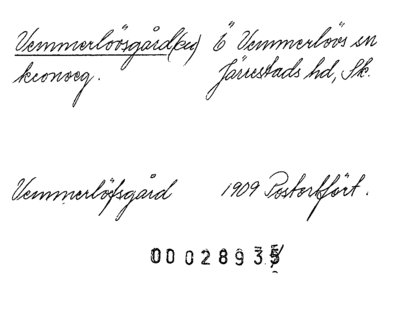 Vemmerlövsgård(en) Ö Vemmerlövs sn
kronoeg. Järrestads hd, Sk.
Vemmerlöfsgård 1909 Postortfört.
00028935